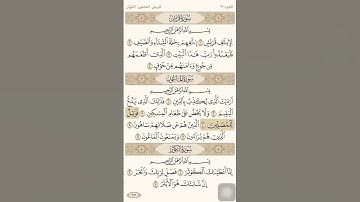 الجزء ٣٠ قريش، الماعون، الكوثر
سُورَةُ قُرَيْشٍ
بِسْمِ اللَّهِ الرَّحْمَٰنِ الرَّحِيمِ
لِإِيلَافِ قُرَيْشٍ ١ إِيلَافِهِمْ رِحْلَةَ الشِّتَاءِ وَالصَّيْفِ ٢
فَلْيَعْبُدُوا رَبَّ هَٰذَا الْبَيْتِ ٣ الَّذِي أَطْعَمَهُم
مِّن جُوعٍ وَآمَنَهُم مِّنْ خَوْفٍ ٤
سُورَةُ الْمَاعُونِ
بِسْمِ اللَّهِ الرَّحْمَٰنِ الرَّحِيمِ
أَرَأَيْتَ الَّذِي يُكَذِّبُ بِالدِّينِ ١ فَذَٰلِكَ الَّذِي يَدُعُّ
الْيَتِيمَ ٢ وَلَا يَحُضُّ عَلَىٰ طَعَامِ الْمِسْكِينِ ٣ فَوَيْلٌ
لِّلْمُصَلِّينَ ٤ الَّذِينَ هُمْ عَن صَلَاتِهِمْ سَاهُونَ ٥
الَّذِينَ هُمْ يُرَاءُونَ ٦ وَيَمْنَعُونَ الْمَاعُونَ ٧
سُورَةُ الْكَوْثَرِ
بِسْمِ اللَّهِ الرَّحْمَٰنِ الرَّحِيمِ
إِنَّا أَعْطَيْنَاكَ الْكَوْثَرَ ١ فَصَلِّ لِرَبِّكَ وَانْحَرْ ٢
إِنَّ شَانِئَكَ هُوَ الْأَبْتَرُ ٣
٦٠٢